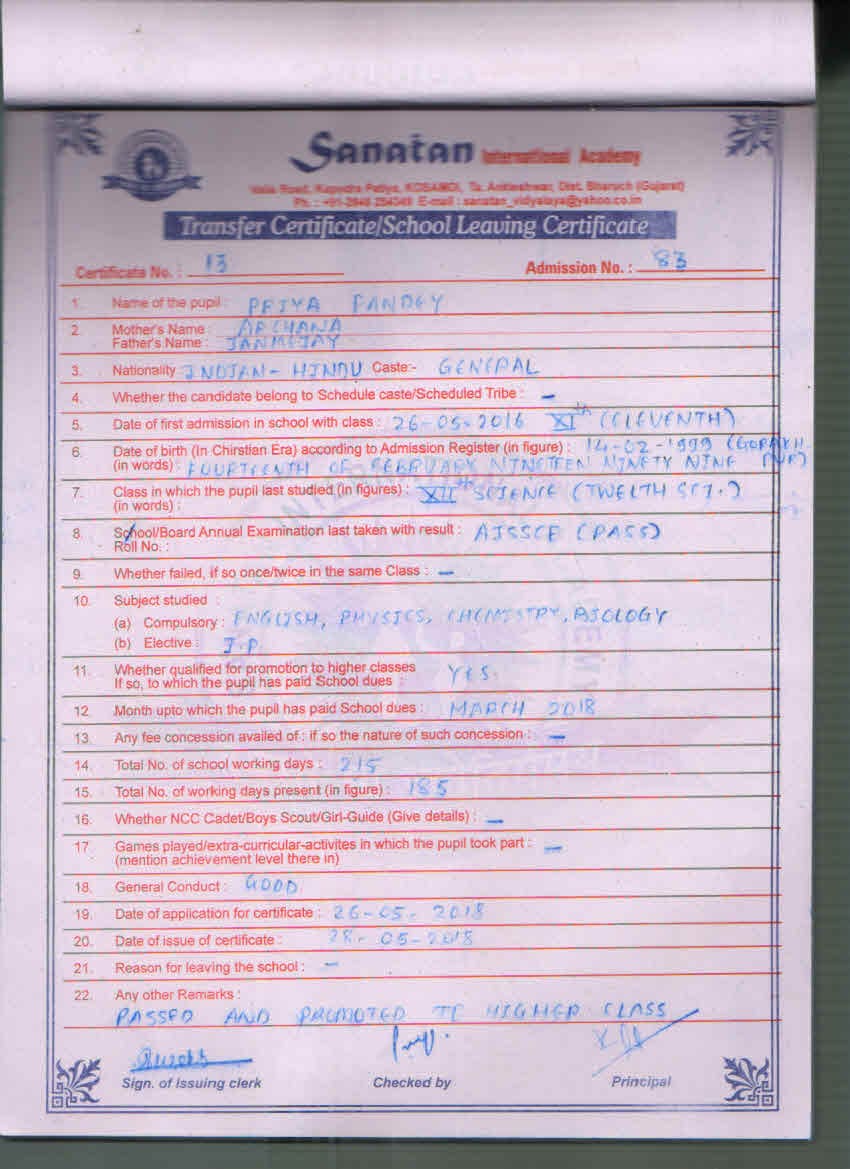 Sanatan International Academy
Valia Road, Kapodra Patiya, KOSAMDI, Ta. Ankleshwar, Dist. Bharuch (Gujarat)
Ph. : +91-2646 254349 E-mail : sanatan_vidyalaya@yahoo.co.in
Transfer Certificate/School Leaving Certificate
Certificate No. : 13 Admission No. : 83
1. Name of the pupil : PRIYA PANDEY
2. Mother's Name : ARCHANA
Father's Name : JANMEJAY
3. Nationality INDIAN - HINDU Caste:- GENERAL
4. Whether the candidate belong to Schedule caste/Scheduled Tribe : —
5. Date of first admission in school with class : 26-05-2016 XIth (ELEVENTH)
6. Date of birth (In Chirstian Era) according to Admission Register (in figure) : 14-02-1999 (GORAKH-
(in words) : FOURTEENTH OF FEBRUARY NINETEEN NINETY NINE PUR)
7. Class in which the pupil last studied (in figures) : XIIth SCIENCE (TWELTH SCI.)
(in words) :
8. School/Board Annual Examination last taken with result : AISSCE (PASS)
Roll No. :
9. Whether failed, if so once/twice in the same Class : —
10. Subject studied :
(a) Compulsory : ENGLISH, PHYSICS, CHEMISTRY, BIOLOGY
(b) Elective : I.P.
11. Whether qualified for promotion to higher classes
If so, to which the pupil has paid School dues : YES.
12. Month upto which the pupil has paid School dues : MARCH 2018
13. Any fee concession availed of : if so the nature of such concession : —
14. Total No. of school working days : 215
15. Total No. of working days present (in figure) : 185
16. Whether NCC Cadet/Boys Scout/Girl-Guide (Give details) : —
17. Games played/extra-curricular-activites in which the pupil took part : —
(mention achievement level there in)
18. General Conduct : GOOD
19. Date of application for certificate : 26-05-2018
20. Date of issue of certificate : 28-05-2018
21. Reason for leaving the school : —
22. Any other Remarks :
PASSED AND PROMOTED TO HIGHER CLASS
Sign. of Issuing clerk Checked by Principal